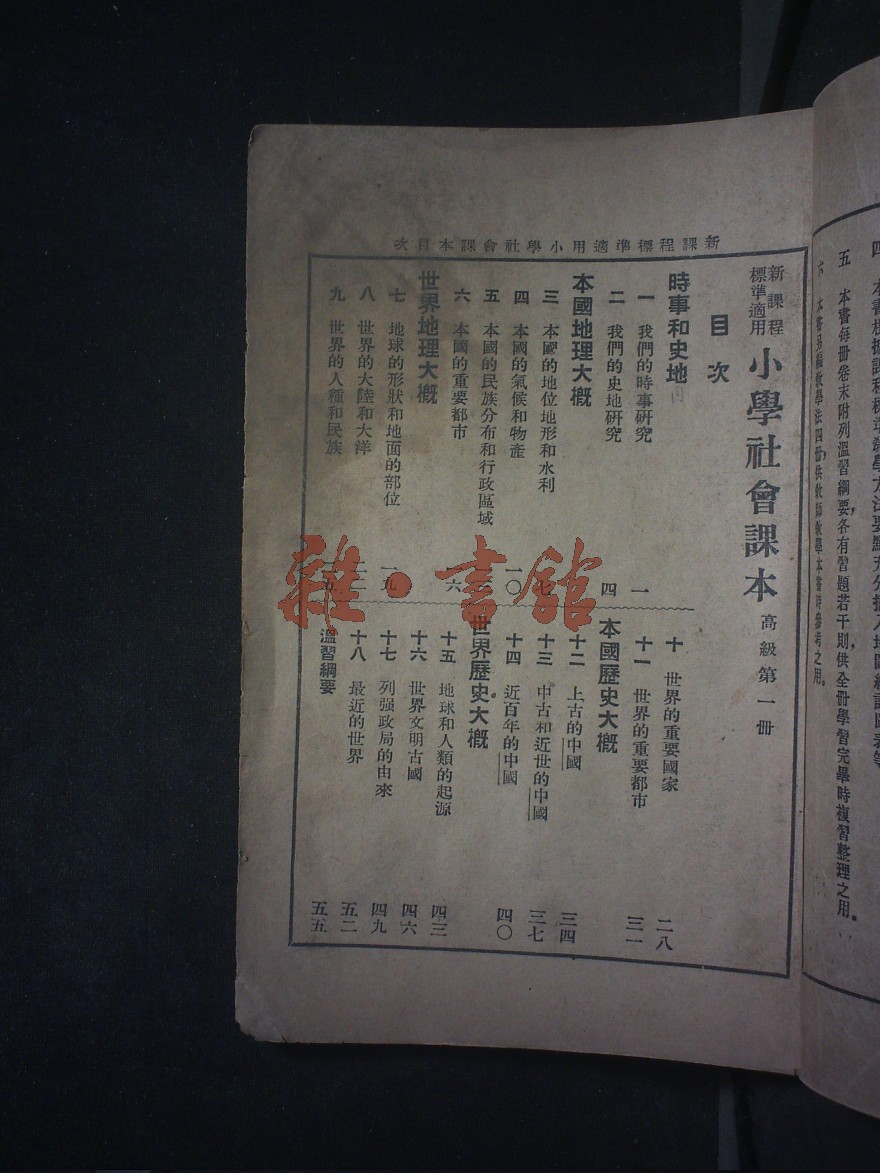 四 本書根據課程標準
五 本書每冊卷末附列溫習綱要，各有習題若干則，供全冊學習完畢時複習整理之用。
六 本書另編教學法四冊，供教師教學本書時參考之用。
新課程標準適用小學社會課本目次
新課程標準適用 小學社會課本 高級第一冊
目次
時事和史地
一 我們的時事研究 一
二 我們的史地研究 四
本國地理大概
三 本國的地位地形和水利 七
四 本國的氣候和物產 一〇
五 本國的民族分布和行政區域
六 本國的重要都市 六
世界地理大概
七 地球的形狀和地面的部位 一九
八 世界的大陸和大洋
九 世界的人種和民族
十 世界的重要國家 二八
十一 世界的重要都市 三一
本國歷史大概
十二 上古的中國 三四
十三 中古和近世的中國 三七
十四 近百年的中國 四〇
世界歷史大概
十五 地球和人類的起源 四三
十六 世界文明古國 四六
十七 列強政局的由來 四九
十八 最近的世界 五二
溫習綱要 五五
雜·書館